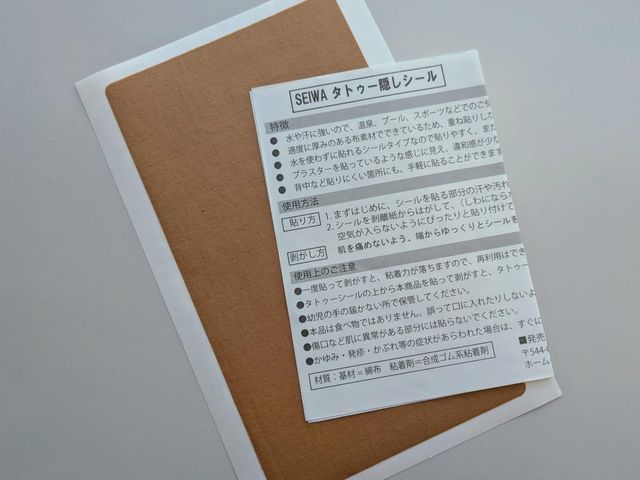 SEIWA タトゥー隠しシール
特徴
● 水や汗に強いので、温泉、プール、スポーツなどでのご使
● 適度に厚みのある布素材でできているため、重ね貼りした
● 水を使わずに貼れるシールタイプなので貼りやすく、また
● プラスターを貼っているような感じに見え、違和感が少な
● 背中など貼りにくい箇所にも、手軽に貼ることができます
使用方法
貼り方 1. まずはじめに、シールを貼る部分の汗や汚れ
2. シールを剥離紙からはがして、（しわにならな
空気が入らないようにぴったりと貼り付けて
剥がし方 肌を痛めないよう、端からゆっくりとシールを
使用上のご注意
●一度貼って剥がすと、粘着力が落ちますので、再利用はでき
●タトゥーシールの上から本商品を貼って剥がすと、タトゥー
●幼児の手の届かない所で保管してください。
●本品は食べ物ではありません。誤って口に入れたりしないよ
●傷口など肌に異常がある部分には貼らないでください。
●かゆみ・発疹・かぶれ等の症状があらわれた場合は、すぐに
材質：基材＝綿布 粘着剤＝合成ゴム系粘着剤
■発売
〒544-
ホーム